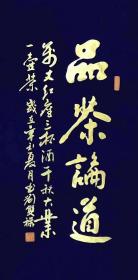 品茶論道
萬丈紅塵三杯酒千秋大業
一壺茶 歲 夏月